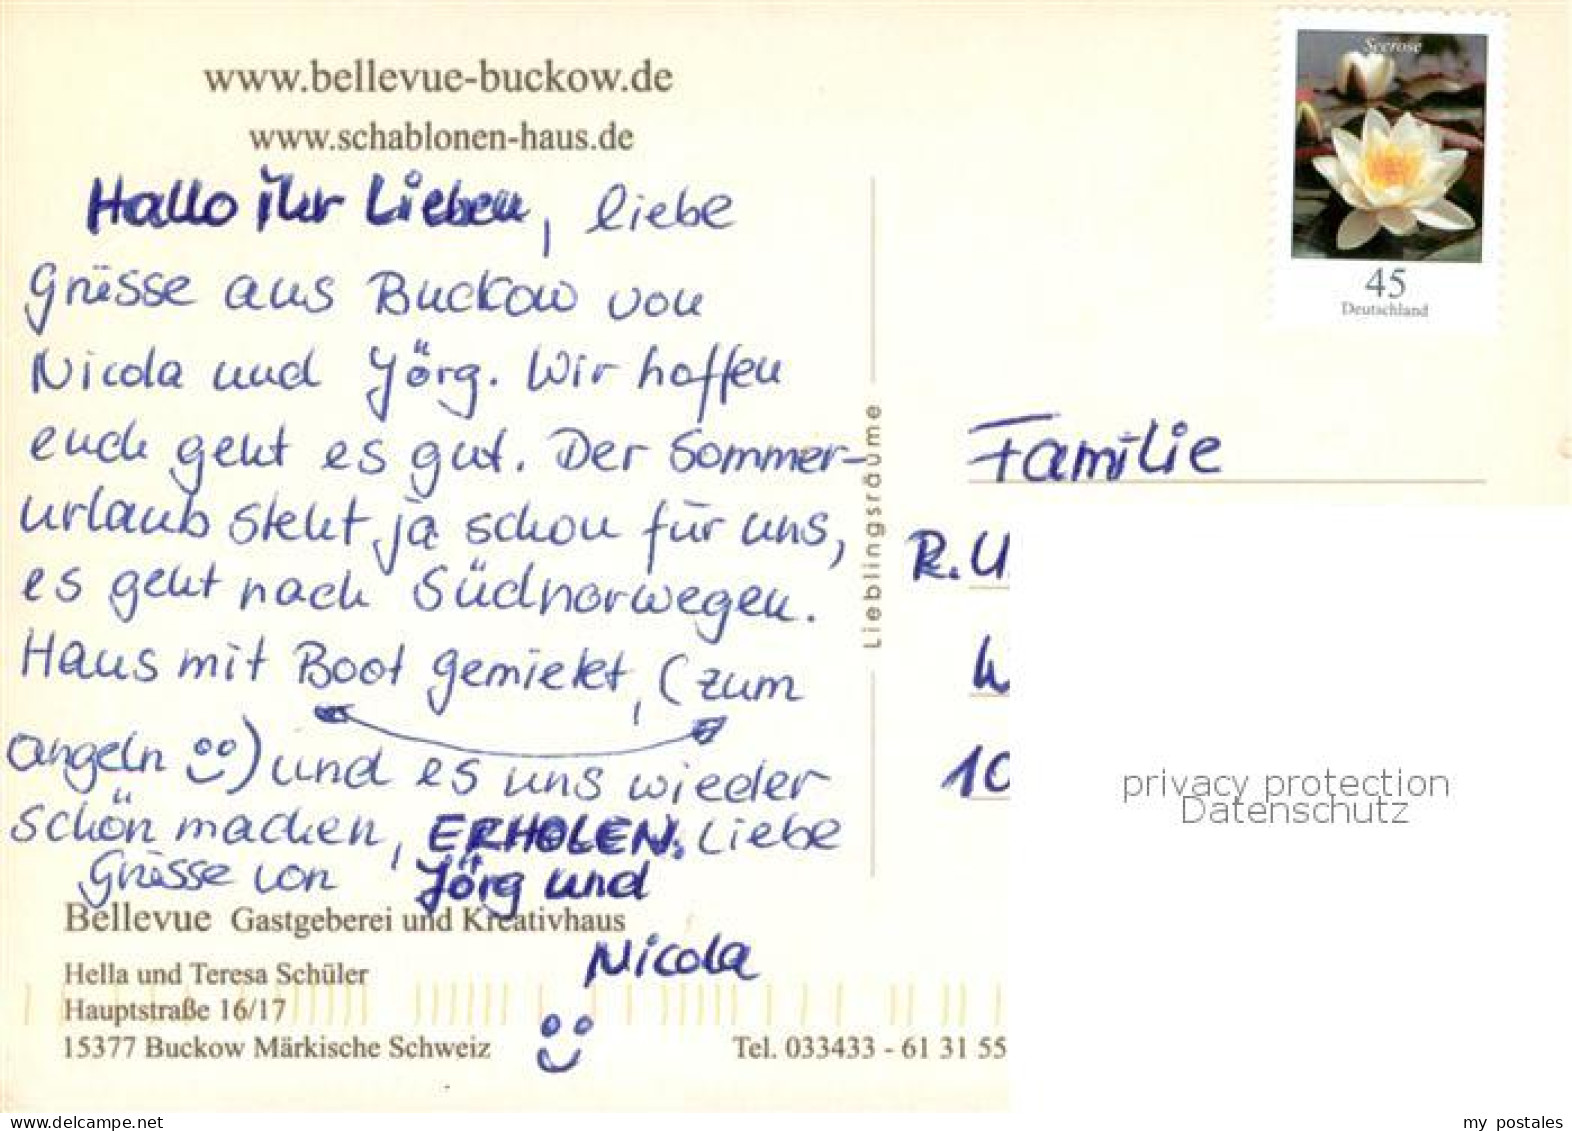 www.bellevue-buckow.de
www.schablonen-haus.de
Hallo ihr Lieben, liebe
Grüsse aus Buckow von
Nicola und Jörg. Wir hoffen
euch geht es gut. Der Sommer-
urlaub steht ja schon für uns,
es geht nach Südnorwegen.
Haus mit Boot gemietet, (zum
angeln ) und es uns wieder
schön machen, ERHOLEN. Liebe
Grüsse von Jörg und
Nicola
Bellevue Gastgeberei und Kreativhaus
Hella und Teresa Schüler
Hauptstraße 16/17
15377 Buckow Märkische Schweiz
Tel. 033433 - 61 31 55
Lieblingsräume
Seerose
45
Deutschland
Familie
R.U.
10
privacy protection
Datenschutz
Delcampe.net
my_postales